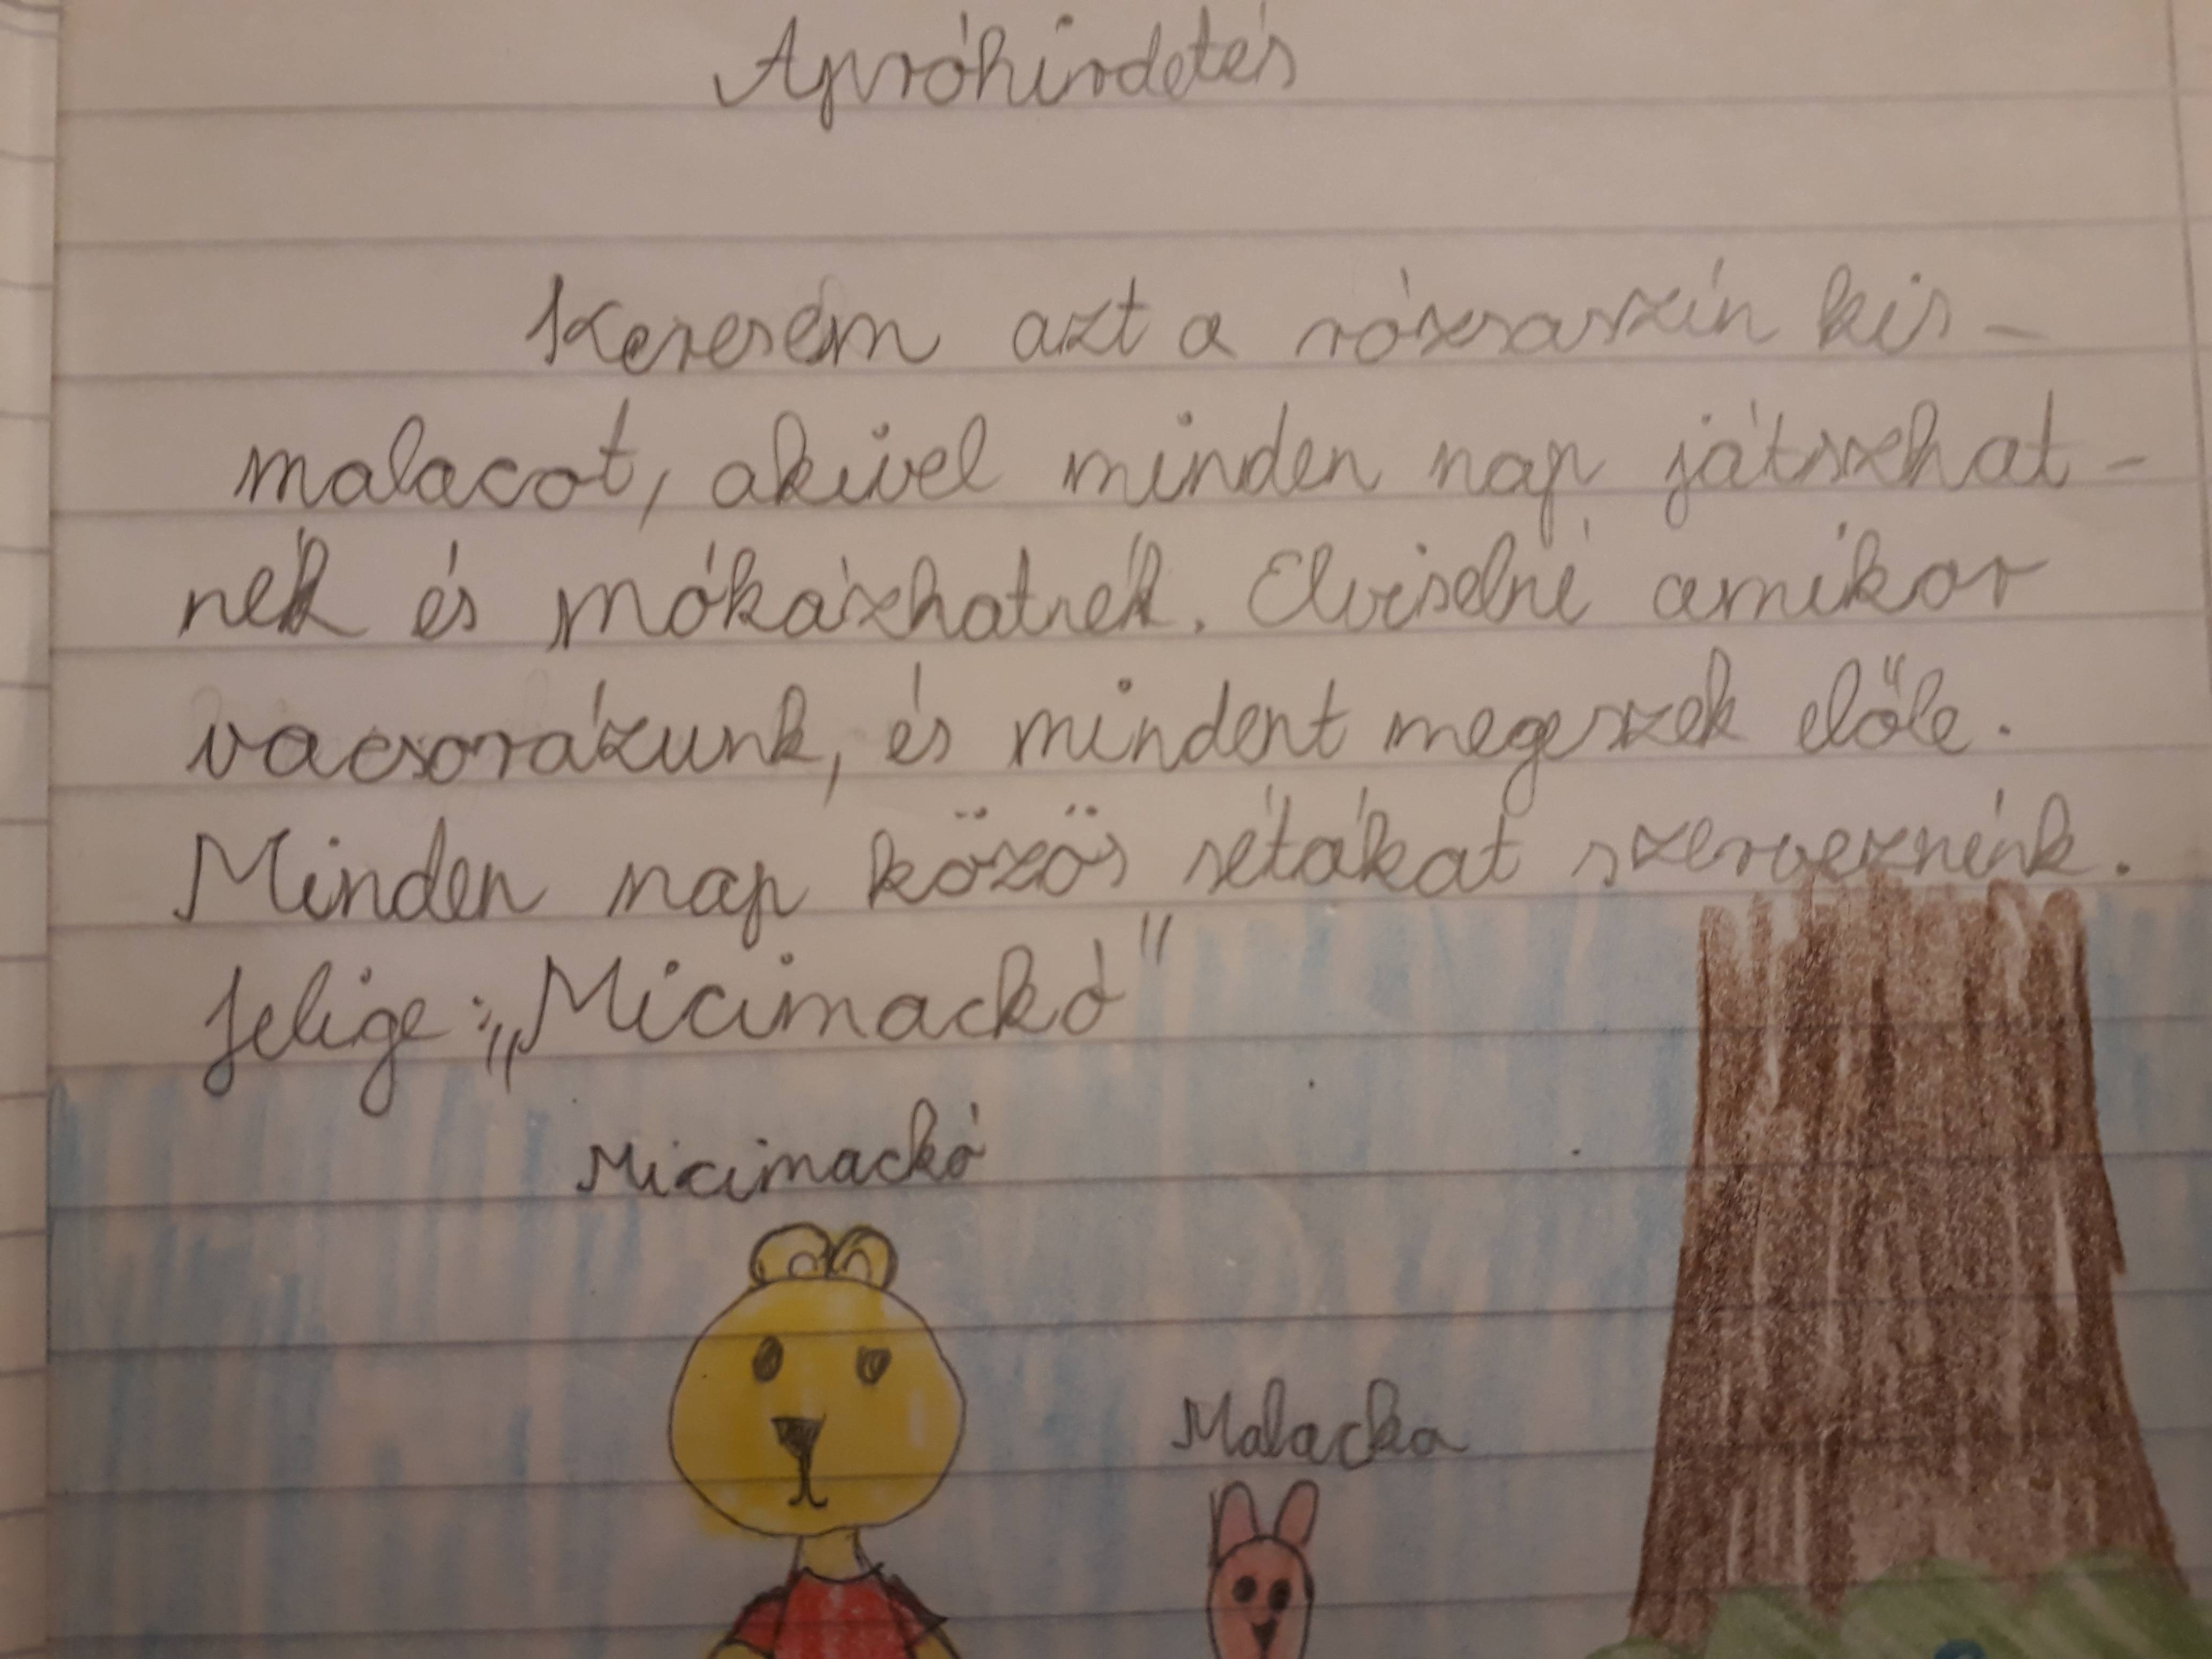 Apróhirdetés
Keresem azt a rózsaszín kis-
malacot, akivel minden nap játszhat-
nék és mókázhatnék. Elviselné amikor
vacsorázunk, és mindent megeszek előle.
Minden nap közös sétákat szerveznénk.
Jelige: „Micimackó"
Micimackó
Malacka